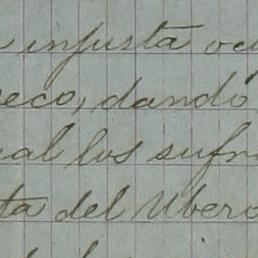 injusta
eco, dando
al los sufr
ta del Ubero